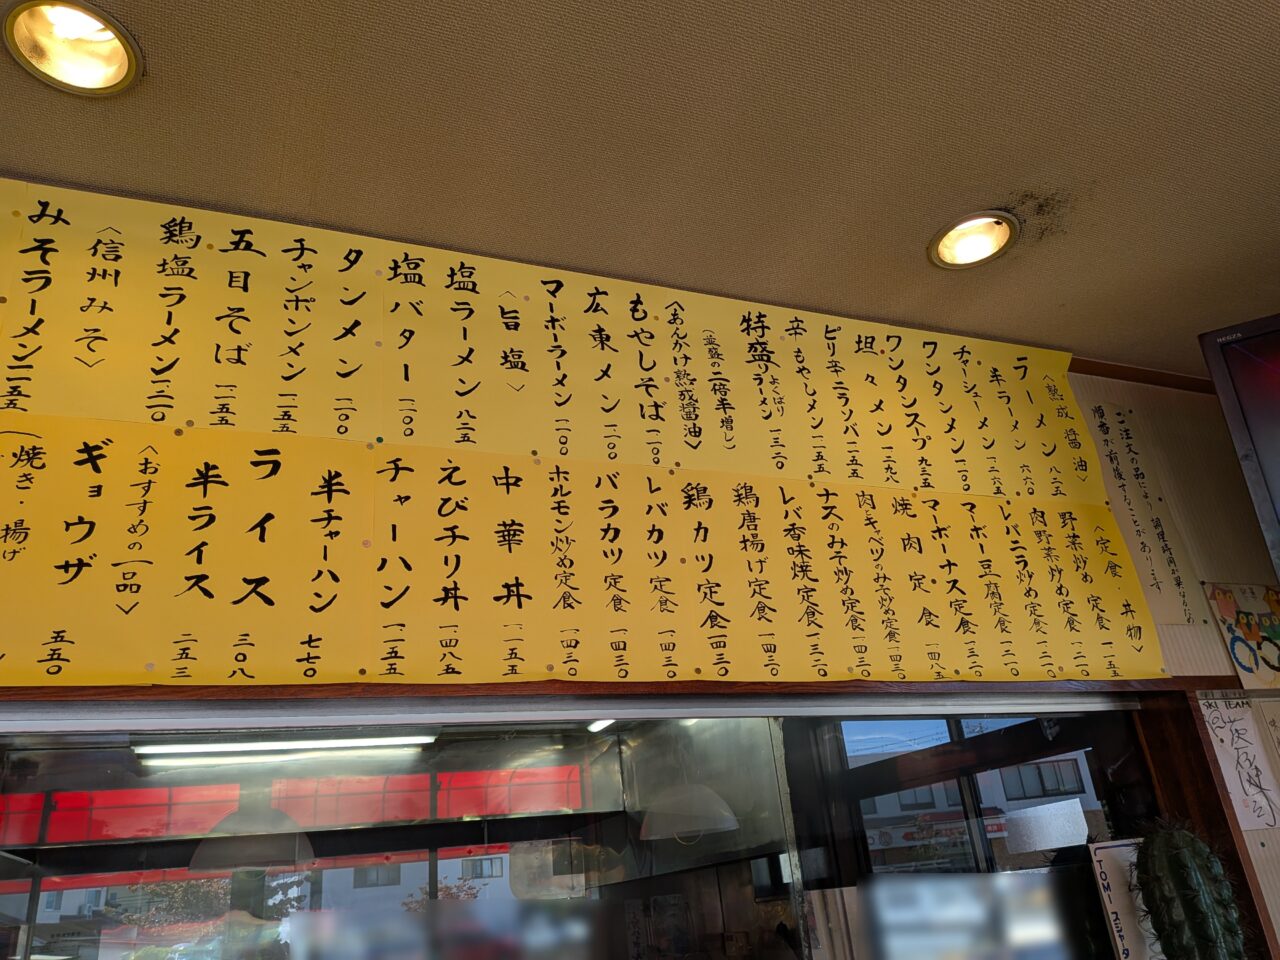 ご注文の品により、調理時間が異なるため
順番が前後することがあります
〈熟成醤油〉
ラーメン 八二五
半ラーメン 六六〇
チャーシューメン 一二六五
ワンタンメン 一一〇〇
ワンタンスープ 九三五
坦々メン 一二九八
ピリ辛ニラソバ 一二五五
辛もやしメン 一二五五
特盛りよくばりラーメン 一三二〇
(並盛の二倍半増し)
〈あんかけ熟成醤油〉
もやしそば 一一〇〇
広東メン 一二〇〇
マーボーラーメン 一二〇〇
〈旨塩〉
塩ラーメン 八二五
塩バター 一一〇〇
タンメン 一一〇〇
チャンポンメン 一二五五
五目そば 一二五五
鶏塩ラーメン 一三二〇
〈信州みそ〉
みそラーメン 一一五五
〈定食・丼物〉
野菜炒め定食 一一五五
肉野菜炒め定食 一二一〇
レバニラ炒め定食 一二一〇
マーボー豆腐定食 一三二〇
マーボーナス定食 一三二〇
焼肉定食 一四八五
肉とキャベツのみそ炒め定食 一四三〇
ナスのみそ炒め定食 一四三〇
レバ香味焼定食 一三二〇
鶏唐揚げ定食 一四三〇
鶏カツ定食 一四三〇
レバカツ定食 一四三〇
バラカツ定食 一四三〇
ホルモン炒め定食 一四三〇
中華丼 一一五五
えびチリ丼 一四八五
チャーハン 一一五五
半チャーハン 七七〇
ライス 三〇八
半ライス 二五三
〈おすすめの一品〉
ギョウザ 五五〇
(焼き・揚げ
REGZA
SKI TEAM
TOMI スジャータ